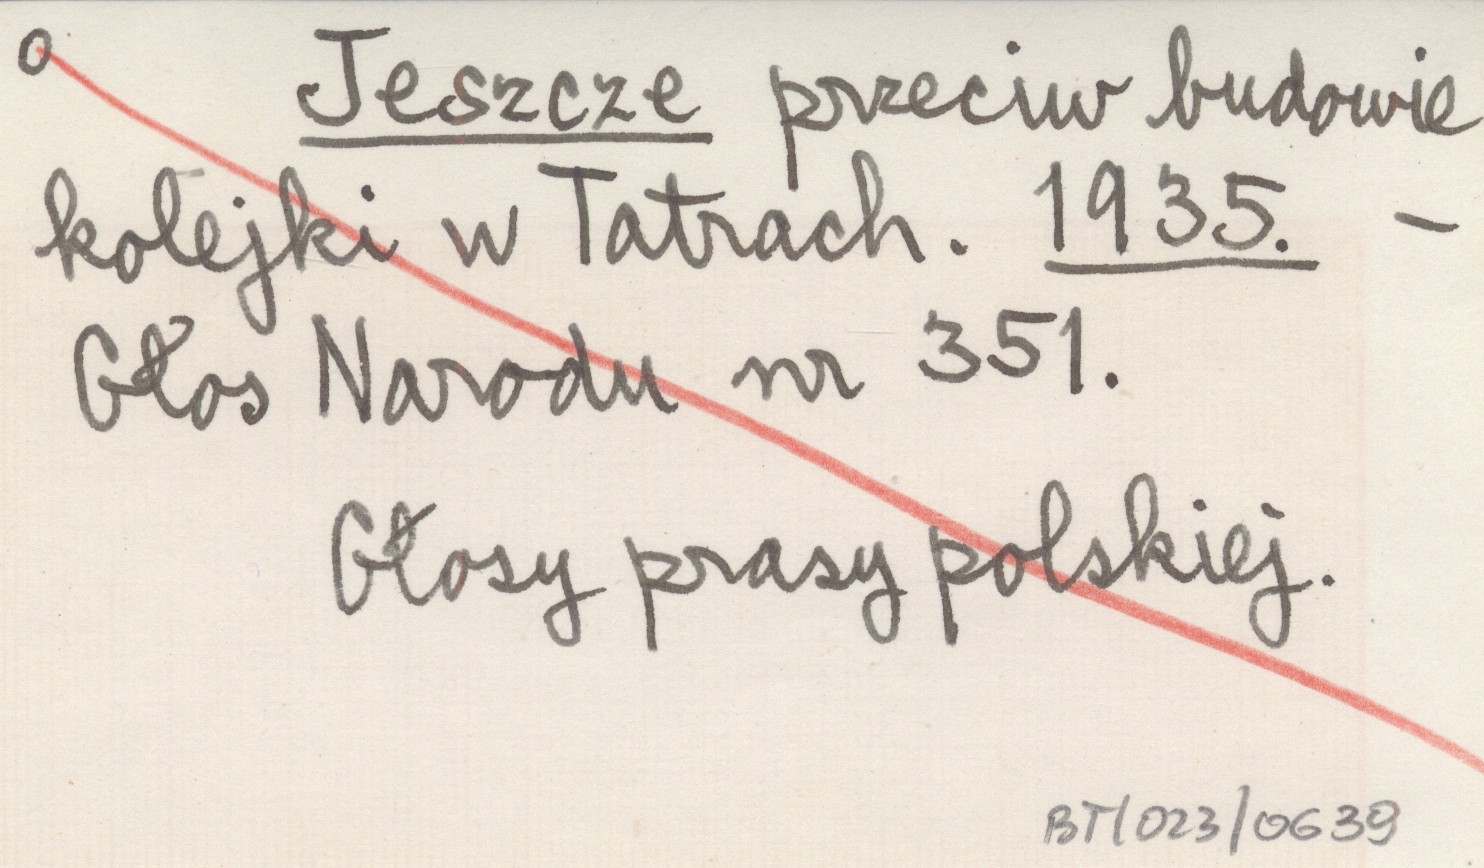 o Jeszcze przeciw budowie
kolejki w Tatrach. 1935. -
Głos Narodu nr 351.
Głosy prasy polskiej.
BT/023/0639